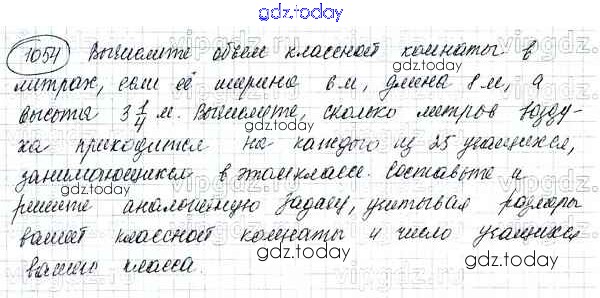 gdz.today
1054 Вычислите объём классной комнаты в
литрах, если её ширина 6 м, длина 8 м, а
высота 3 1/4 м. Вычислите, сколько литров возду-
ха приходится на каждого из 25 учащихся,
занимающихся в этом классе. Составьте и
решите аналогичную задачу, учитывая размеры
вашей классной комнаты и число учащихся
вашего класса.
gdz.today